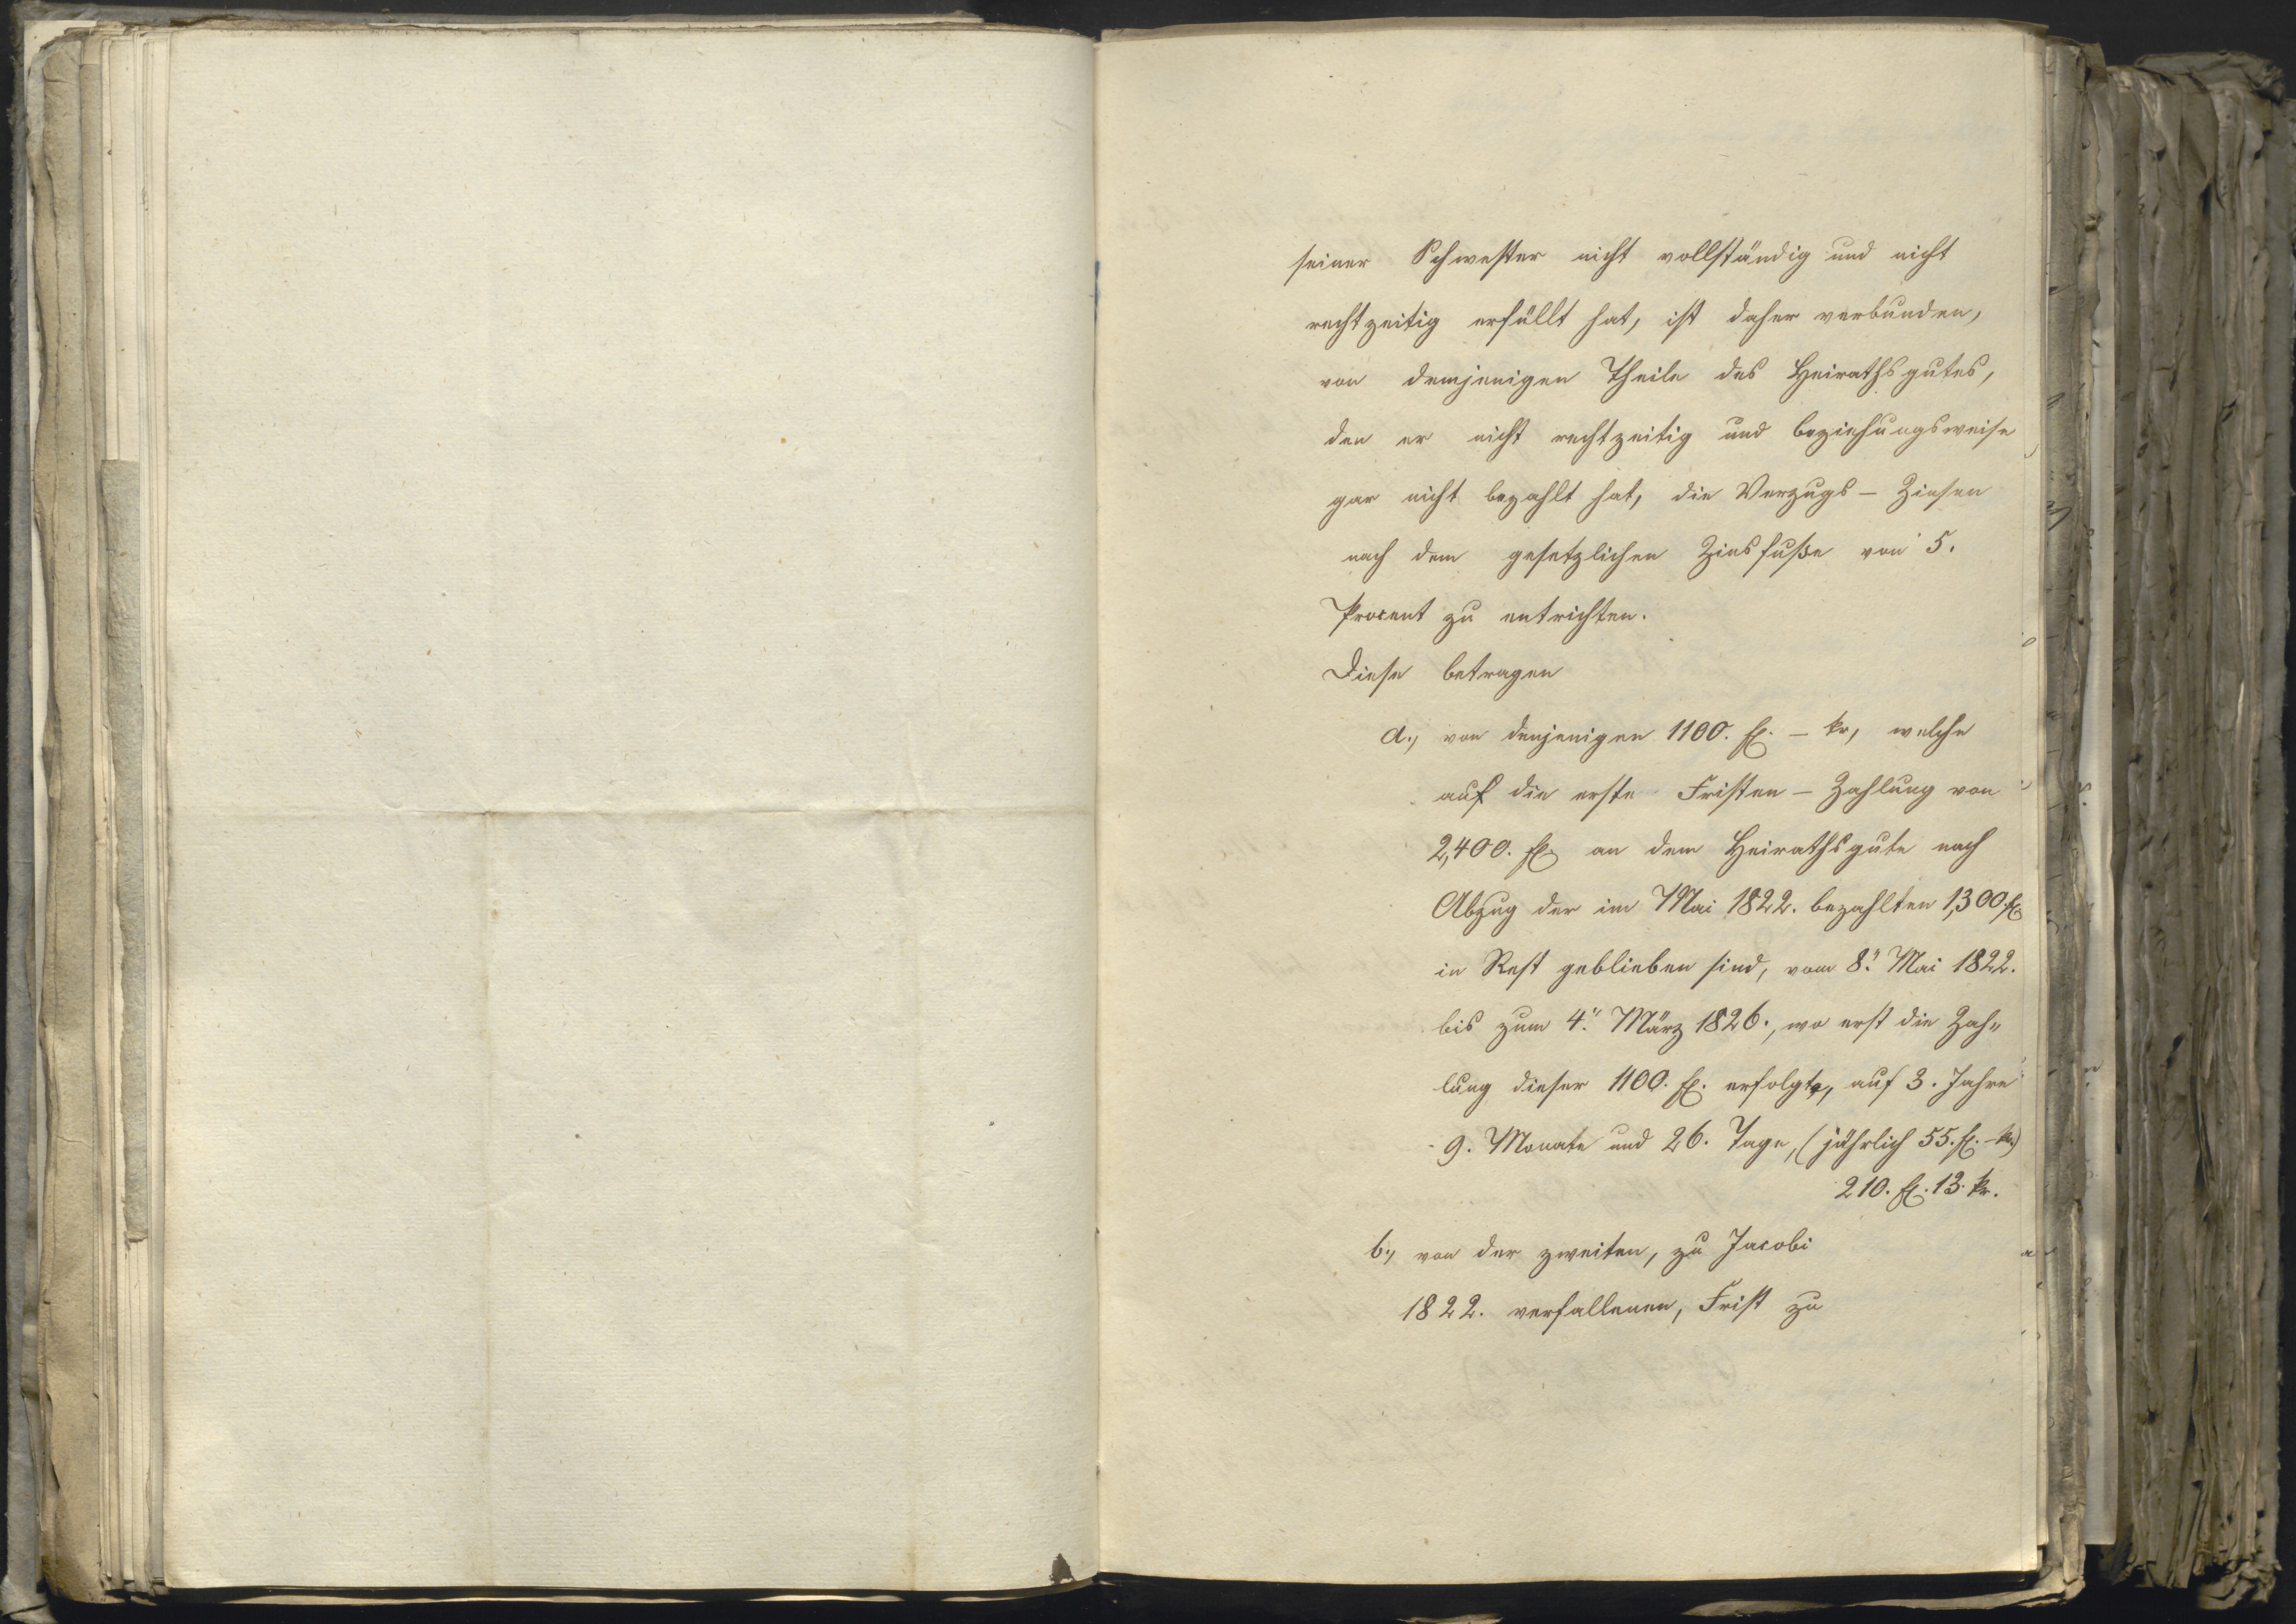 seiner Schwester nicht vollständig und nicht
rechtzeitig erfüllt hat, ist daher verbunden,
von demjenigen Theile des Heirathsgutes,
den er nicht rechtzeitig und beziehungsweise
gar nicht bezahlt hat, die Verzugs - Zinsen
nach dem gesetzlichen Zinsfuße von 5.
Procent zu entrichten.
Diese betragen
a., von denjenigen 1100. fl. - kr, welche
auf die erste Fristen - Zahlung von
2,400. fl. an dem Heirathsgute nach
Abzug der im Mai 1822. bezahlten 1,300. fl
in Rest geblieben sind, vom 8." Mai 1822.
bis zum 4." März 1826., wo erst die Zah„
lung dieser 1100. fl. erfolgte, auf 3. Jahre
9. Monate und 26. Tage, (jährlich 55. fl. - kr.)
210. fl. 13. kr.
b., von der zweiten, zu Jacobi
1822. verfallenen, Frist zu